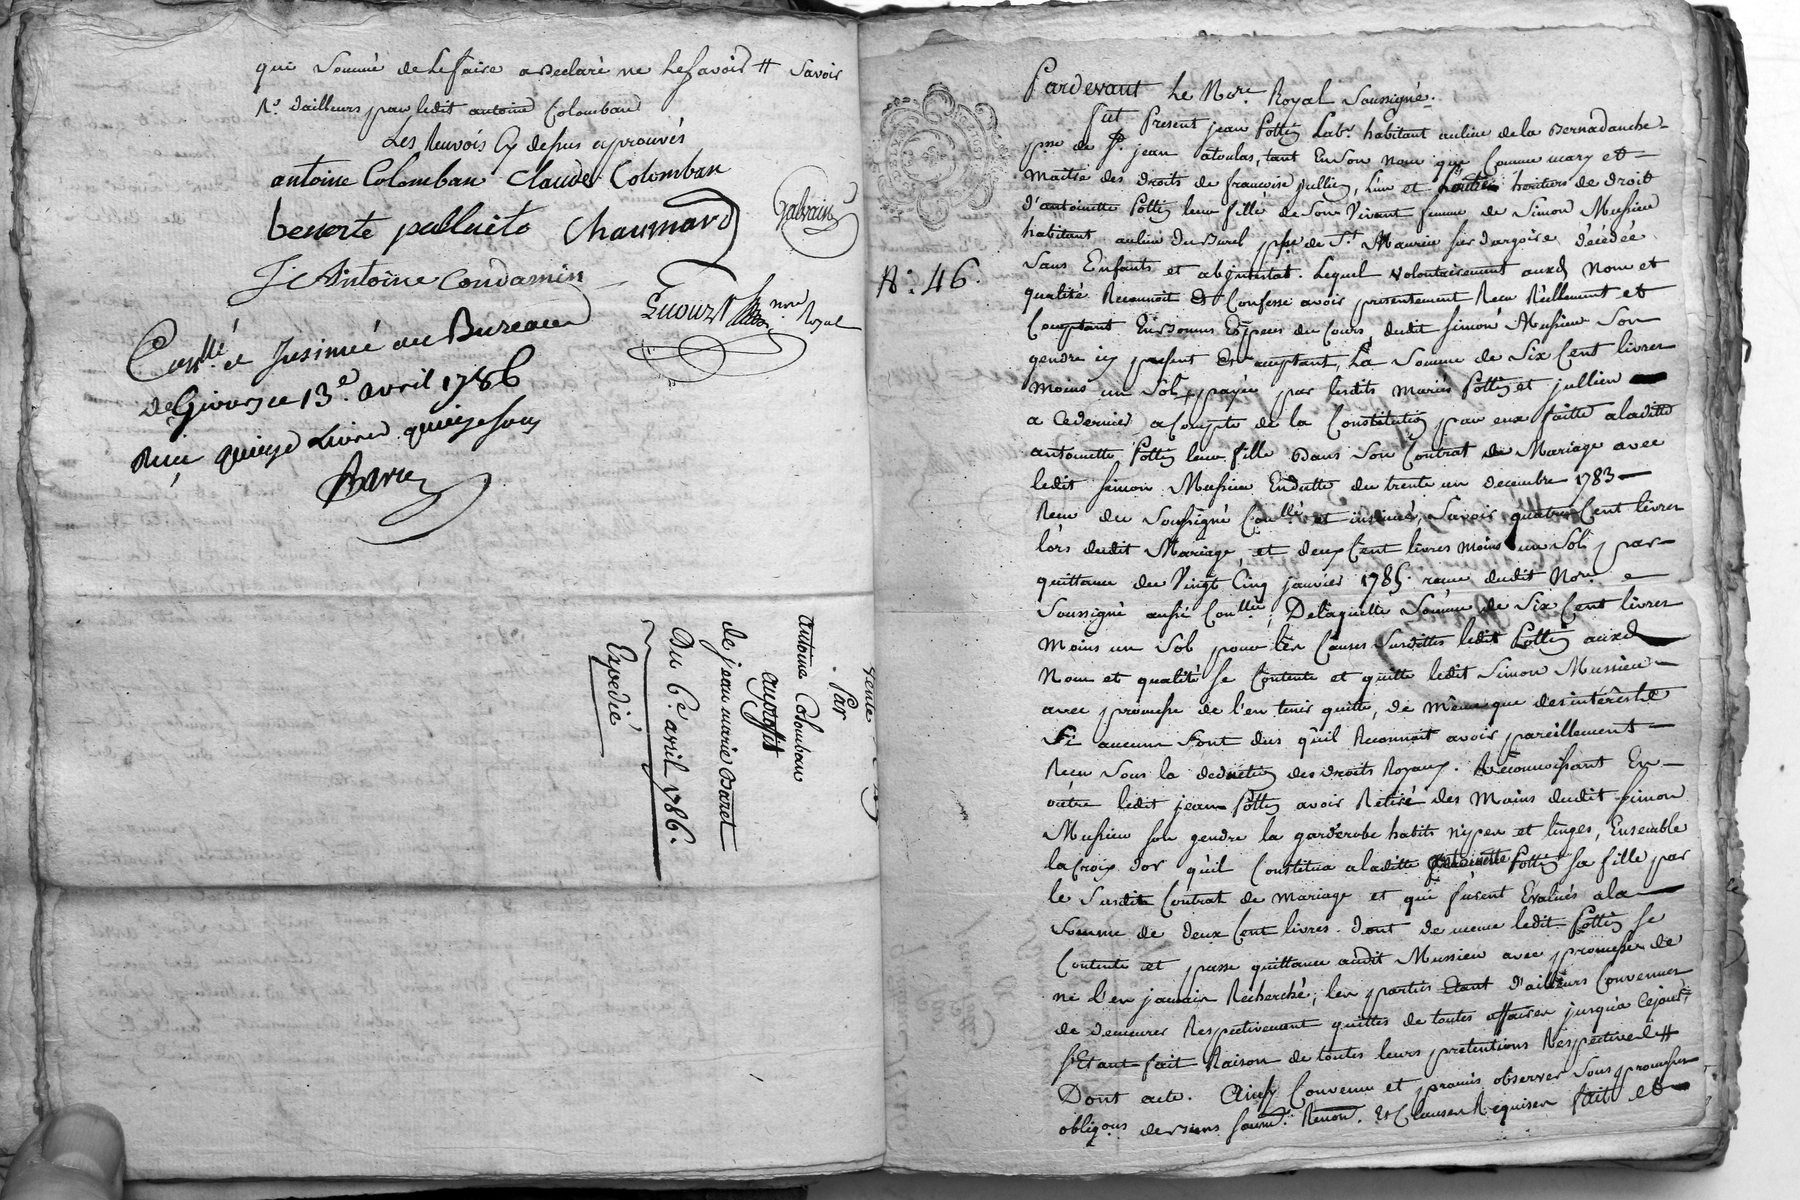 qui sommé de le faire a declaré ne le savoir # savoir
d'ailleurs par ledit antoine Colomban
Les renvois cy depus aprouvés
antoine Colomban Claude Colomban
benoite palluito Chaumard Galvain
JC Antoine Condamin
nore Royal
Conllé et Insinué au Bureau
de Givors ce 13e avril 1786
Reçu quinze Livres quinze sous
Vente
Par
antoine Colomban
au profit
de jean marie Baret
Du 6e avril 1786.
Expedié
Pardevant Le Nore Royal Soussigné.
fut Present jean Pottin Labr habitant au lieu de la Bernadanche
psse de St jean atoulas, tant En son Nom que Comme mary et
maitre des droits de francoise jullien, L'un et heritiers de droit
d'antoinette Pottin leur fille de son Vivant femme de Simon Mussieu
habitant au lieu du Burel psse de St Maurice sur dargoire, décédée
Sans Enfants et abintestat. Lequel volontairement auxd Nom et
N°. 46.
qualité Reconnoit Et Confesse avoir presentement Reçu Réellement et
Comptant En bonnes Especes du Cours, dudit simon Mussieu Son
gendre icy present Et acceptant, La Somme de Six Cent livres
moins un Sol, payée par lesdits mariés Pottin et jullien
a Ce dernier a Compte de la Constitution par eux faitte a laditte
antoinette Pottin leur fille Dans Son Contrat de Mariage avec
ledit simon Mussieu En datte du trente un decembre 1783
Reçu du Soussigné Conllé et insinué, Savoir quatre Cent livres
lors dudit Mariage, et deux Cent livres moins un Sol, par
quittance du Vingt Cinq janvier 1785. reçue dudit Nore
Soussigné aussi Conllée, De laquelle Somme de Six Cent livres
Moins un Sol pour les Causes Susdittes ledit Pottin auxd
Nom et qualité Se Contente et quitte ledit Simon Mussieu
avec promesse de l'en tenir quitte, de même que des intérêsts
Si aucuns Sont dus qu'il Reconnoit avoir pareillement
Reçu Sous la deduction des droits Royaux. Reconnoissant En
outre ledit jean Pottin avoir Retiré des Mains dudit Simon
Mussieu son gendre la garderobe habits nipes et linges, Ensemble
la Croix d'or qu'il Constitua a laditte antoinette Pottin sa fille par
le Susdit Contrat de Mariage et qui furent Evalués a la
Somme de deux Cent livres. dont de meme ledit Pottin Se
Contente et passe quittance audit Mussieu avec promesse de
ne l'en jamais Recherché, les parties Etant d'ailleurs Convenues
de demeurer Respectivement quittes de toutes affaires jusqu'a Cejourd.
s'Etant fait Raison de toutes leurs pretentions Respectives #
Dont acte. Ainsy Convenu et promis observer Sous promesses
obligons de biens soumn. Renon. Et Clauses Requises fait et